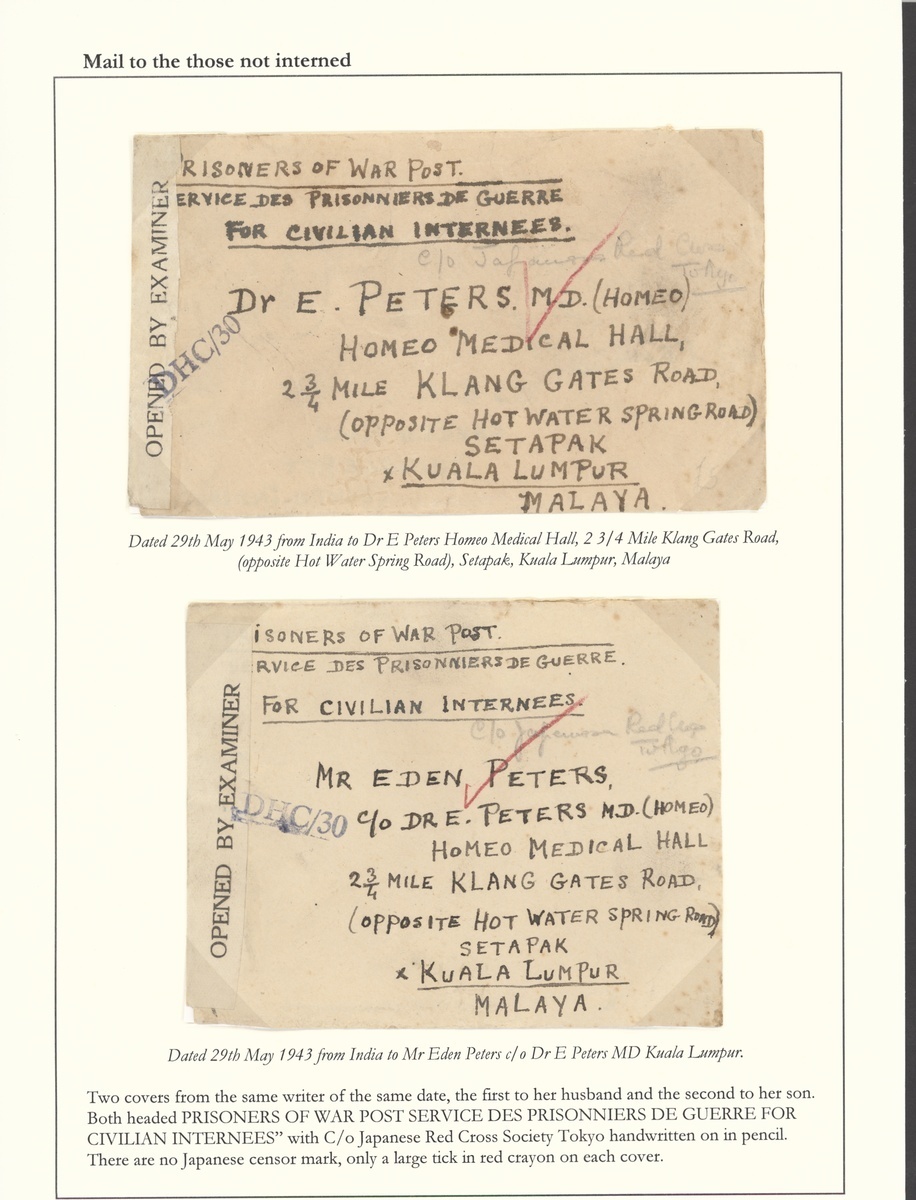 Mail to the those not interned
RISONERS OF WAR POST.
ERVICE DES PRISONNIERS DE GUERRE
FOR CIVILIAN INTERNEES.
C/o Japanese Red Cross
Tokyo
Dr E. PETERS. M.D. (HOMEO)
HOMEO MEDICAL HALL,
2 3/4 MILE KLANG GATES ROAD,
(OPPOSITE HOT WATER SPRING ROAD)
SETAPAK
x KUALA LUMPUR
MALAYA.
OPENED BY EXAMINER
DHC/30
Dated 29th May 1943 from India to Dr E Peters Homeo Medical Hall, 2 3/4 Mile Klang Gates Road,
(opposite Hot Water Spring Road), Setapak, Kuala Lumpur, Malaya
ISONERS OF WAR POST.
RVICE DES PRISONNIERS DE GUERRE.
FOR CIVILIAN INTERNEES.
C/o Japanese Red Cross
Tokyo
MR EDEN PETERS,
C/o DR E. PETERS M.D. (HOMEO)
HOMEO MEDICAL HALL
2 3/4 MILE KLANG GATES ROAD,
(OPPOSITE HOT WATER SPRING ROAD)
SETAPAK
x KUALA LUMPUR
MALAYA.
OPENED BY EXAMINER
DHC/30
Dated 29th May 1943 from India to Mr Eden Peters c/o Dr E Peters MD Kuala Lumpur.
Two covers from the same writer of the same date, the first to her husband and the second to her son.
Both headed PRISONERS OF WAR POST SERVICE DES PRISONNIERS DE GUERRE FOR
CIVILIAN INTERNEES” with C/o Japanese Red Cross Society Tokyo handwritten on in pencil.
There are no Japanese censor mark, only a large tick in red crayon on each cover.